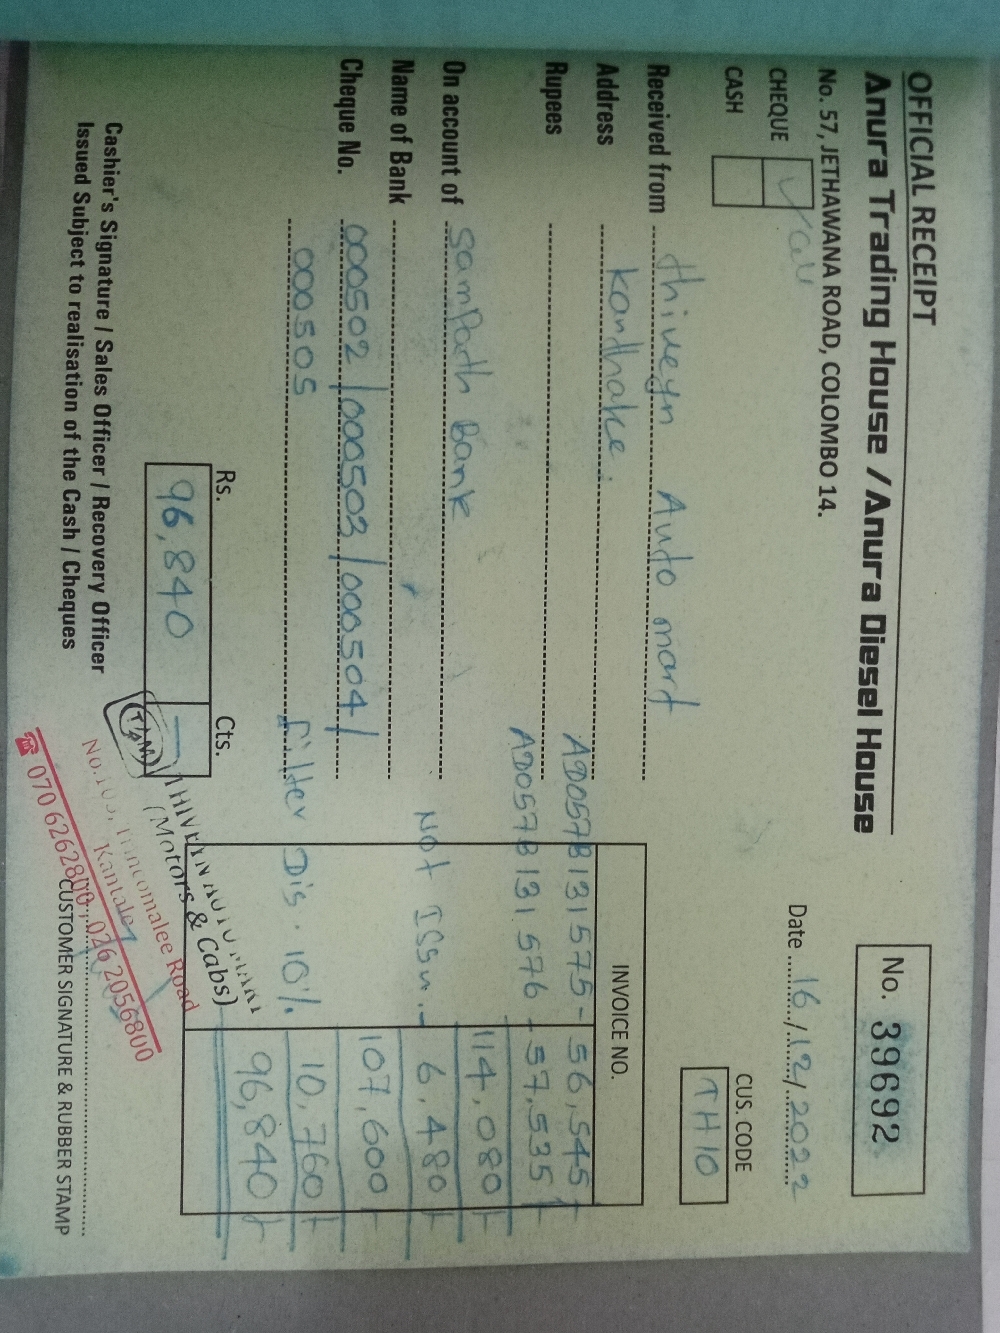 OFFICIAL RECEIPT
Anura Trading House / Anura Diesel House
No. 57, JETHAWANA ROAD, COLOMBO 14.
No. 39692
CHEQUE
CASH
Date 16/12/2022
CUS. CODE
TH10
Received from thiveyn Auto mart
Address kanthake.
Rupees
INVOICE NO.
AD057B131575 - 56,545/-
AD057B131576 - 57,535/-
114,080/-
On account of Sampath Bank
Not Issu. - 6,480/-
Name of Bank
107,600/-
Cheque No. 000502/000503/000504/
000505
filter Dis. 10% 10,760/-
96,840/-
Rs. Cts.
96,840 —
THIVEYN AUTO MART
(Motors & Cabs)
Trincomalee Road
Kantale
070 6262800, 026 2056800
Cashier's Signature / Sales Officer / Recovery Officer
Issued Subject to realisation of the Cash / Cheques
CUSTOMER SIGNATURE & RUBBER STAMP